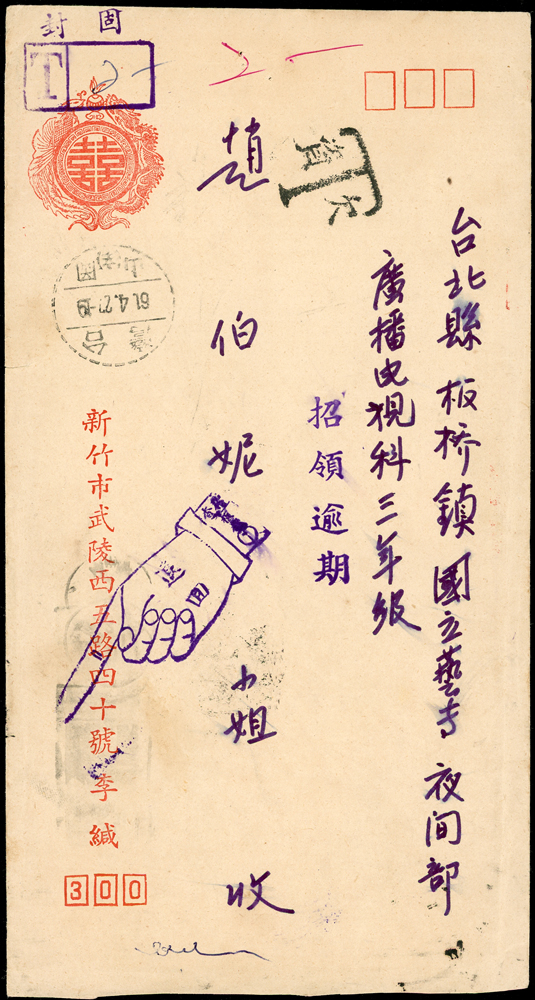 台北縣板桥鎮國立藝专夜间部
廣播电視科三年級
招領逾期
趙伯妮小姐收
欠資
T
2-
封固
T
2-
囍
61.4.2
台
退回
新竹市武陵西五路四十號李緘
300